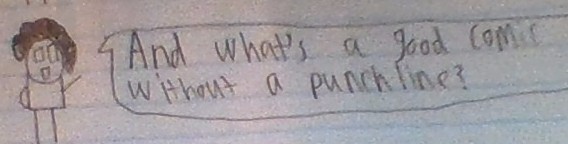 And what's a good comic
without a punchline?